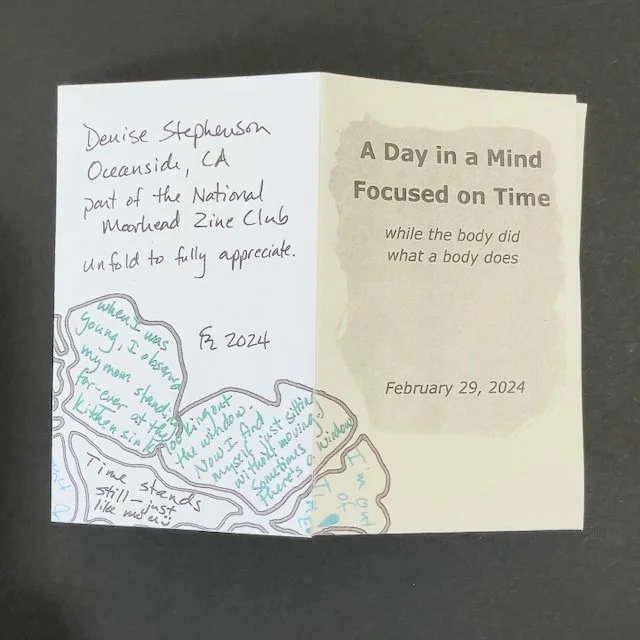 Denise Stephenson
Oceanside, CA
part of the National
Moorhead Zine Club
unfold to fully appreciate.
2024
when I was
young, I observed
my mom standing
for-ever at the
kitchen sink
looking out
the window.
Now I find
myself just sitting
without moving.
Sometimes
there's a
window
Time stands
still — just
like mom
I'm out
of
TIME
A Day in a Mind
Focused on Time
while the body did
what a body does
February 29, 2024